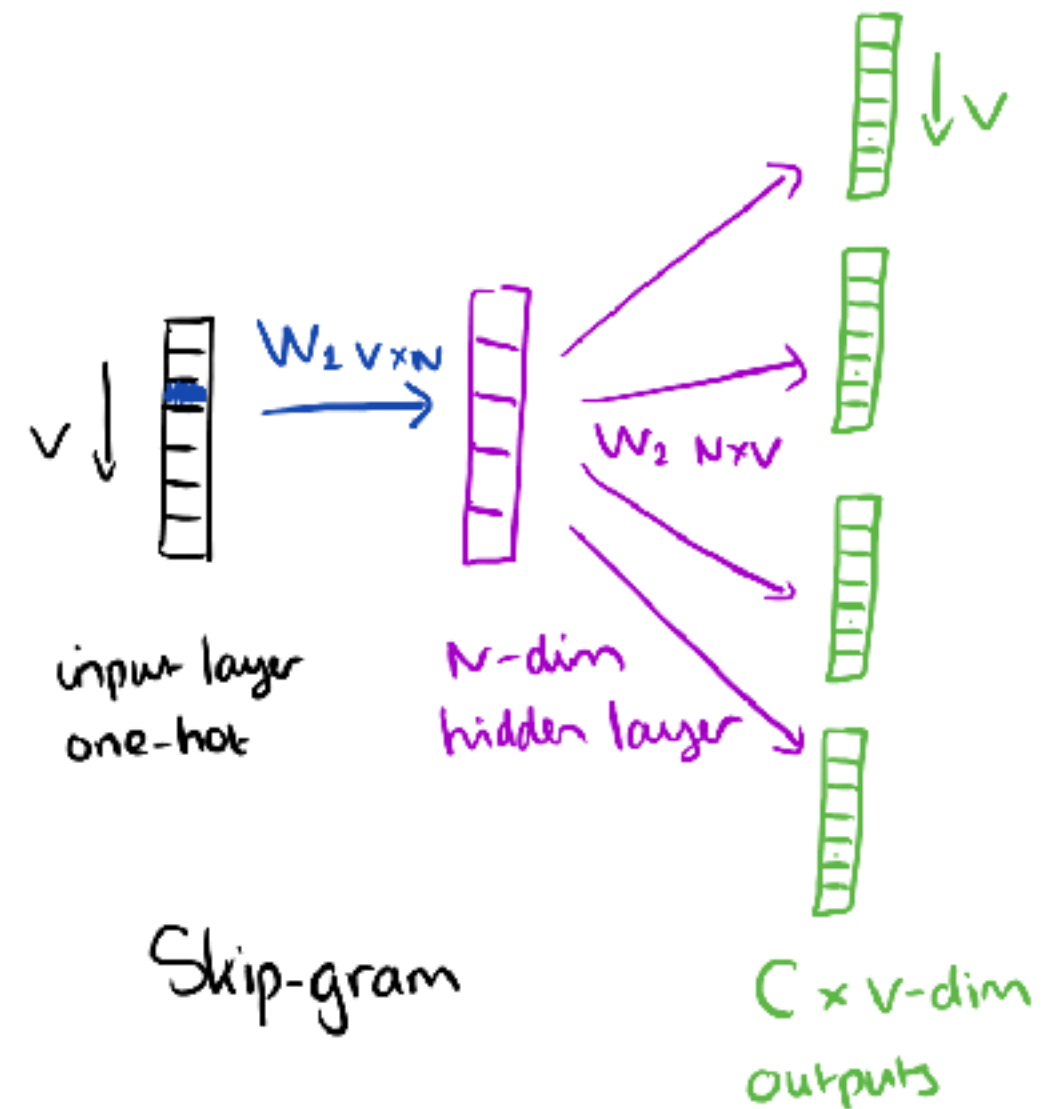 V
V
W₁ V×N
W₂ N×V
input layer
one-hot
N-dim
hidden layer
Skip-gram
C × V-dim
outputs